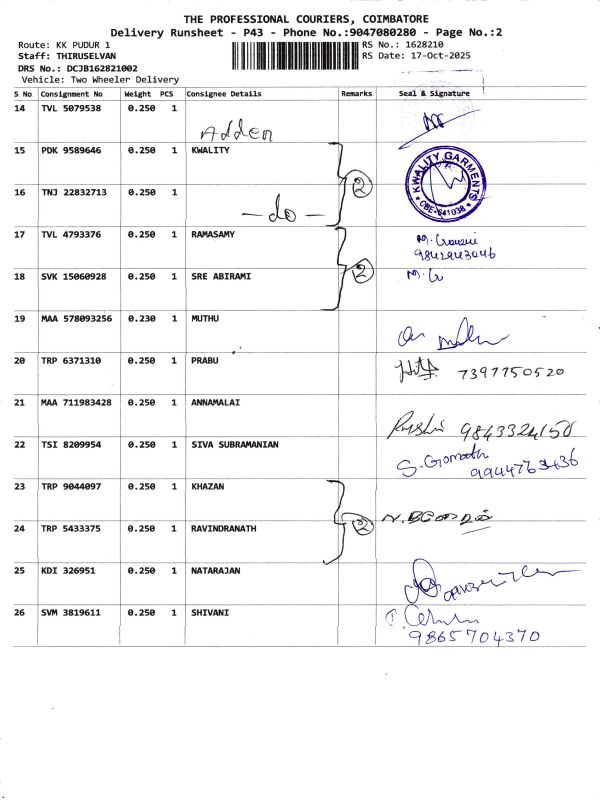 THE PROFESSIONAL COURIERS, COIMBATORE
Delivery Runsheet - P43 - Phone No.:9047080280 - Page No.:2
Route: KK PUDUR 1 RS No.: 1628210
Staff: THIRUSELVAN RS Date: 17-Oct-2025
DRS No.: DCJB162821002
Vehicle: Two Wheeler Delivery
S No Consignment No Weight PCS Consignee Details Remarks Seal & Signature
14 TVL 5079538 0.250 1
Adden
15 PDK 9589646 0.250 1 KWALITY
KWALITY GARMENTS
CBE-641038
16 TNJ 22832713 0.250 1 2
- do -
17 TVL 4793376 0.250 1 RAMASAMY
9842943046
18 SVK 15060928 0.250 1 SRE ABIRAMI 2
19 MAA 578093256 0.230 1 MUTHU
20 TRP 6371310 0.250 1 PRABU
7397750520
21 MAA 711983428 0.250 1 ANNAMALAI
9843324150
22 TSI 8209954 0.250 1 SIVA SUBRAMANIAN
S. Gomathi
9944763436
23 TRP 9044097 0.250 1 KHAZAN
24 TRP 5433375 0.250 1 RAVINDRANATH 2
25 KDI 326951 0.250 1 NATARAJAN
26 SVM 3819611 0.250 1 SHIVANI
9865704370